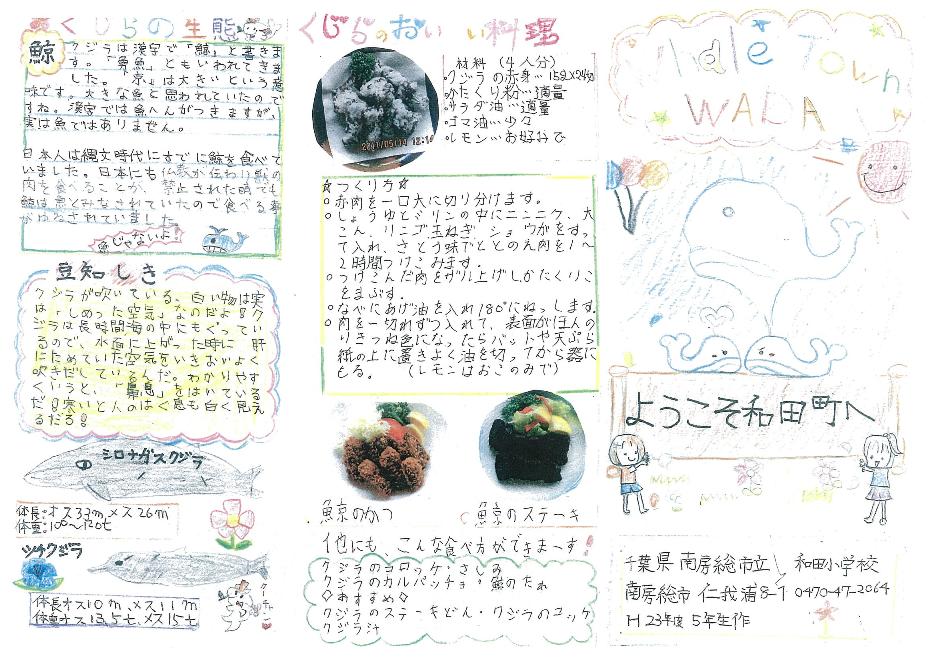 くじらの生態
鯨
クジラは漢字で「鯨」と書きま
す。「勇魚」ともいわれてきま
した。「京」は大きいという意
味です。大きな魚と思われていたので
すね。漢字では魚へんがつきますが、
実は魚ではありません。
日本人は縄文時代にすでに鯨を食べて
いました。日本にも仏教が伝わり獣の
肉を食べることが、禁止された時でも
鯨は魚とみなされていたので食べる事
がゆるされていました。
魚じゃないよ!
豆知しき
クジラが吹いている、白い物は実
は「しめった空気」なのだよ!!ク
ジラは長時間海の中にもぐってい
るので、水面に上がった時に、肺
にためていた空気をいきおいよく
吹きだしているんだ。わかりやす
くいうと、「鼻息」をはいている
んだ!!寒いと人のはく息も白く見え
るだろ!!
シロナガスクジラ
体長:オス33m メス26m
体重:100〜120t
ツチクジラ
体長オス10m、メス11m
体重オス13.5t、メス15t
くじらのおいしい料理
材料(4人分)
クジラの赤身…15g×24切
かたくり粉…適量
サラダ油…適量
ゴマ油…少々
レモン…お好みで
☆つくり方☆
赤肉を一口大に切り分けます。
しょうゆとミリンの中にニンニク、大
こん、リンゴ玉ねぎ、ショウガをすっ
て入れ、さとう味でととのえ肉を1〜
2時間つけこみます。
つけこんだ肉をザル上げしかたくりこ
をまぶす。
なべにあげ油を入れ180°にねっします。
肉を一切れずつ入れて、表面がほんの
りきつね色になったらバットや天ぷら
紙の上に置きよく油を切ってから器に
もる。(レモンはおこのみで)
鯨のかつ
鯨のステーキ
他にも、こんな食べ方ができまーす!
クジラのコロッケ・さしみ
クジラのカルパッチョ・鯨のたれ
◇おすすめ◇
クジラのステーキどん・クジラのコロッケ
クジラ汁
Whale Town
WADA
ようこそ和田町へ
千葉県 南房総市立 和田小学校
南房総市 仁我浦8-1 0470-47-2064
H23年度 5年生作